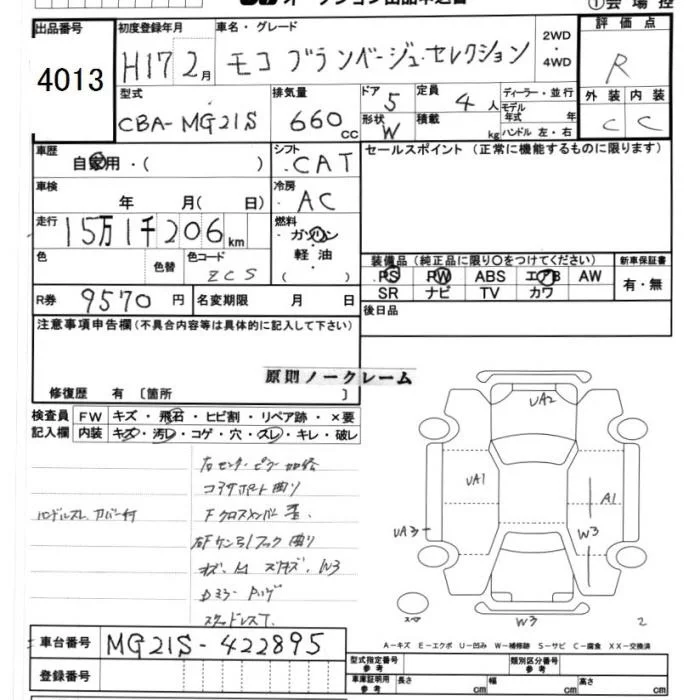 ①会場控
出品番号
4013
初度登録年月
H17 2月
車名・グレード
モコ ブランベージュ・セレクション
2WD
・
4WD
評価点
R
外装 内装
C C
型式
CBA-MG21S
排気量
660cc
ドア 5
形状 W
定員 4人
積載 kg
ディーラー・並行
モデル年式 年
ハンドル 左・右
車歴
自家用・( )
シフト
CAT
セールスポイント (正常に機能するものに限ります)
車検
年 月( 日)
冷房
AC
走行
15万1千206km
燃料
ガソリン
・
軽油
( )
色
色替
色コード
ZCS
装備品 (純正品に限り○をつけてください)
PS PW ABS エアB AW
SR ナビ TV カワ
新車保証書
有・無
R券 9570円
名変期限 月 日
後日品
注意事項申告欄(不具合内容等は具体的に記入して下さい)
修復歴 有 [箇所 ]
原則ノークレーム
検査員記入欄
FW キズ・飛石・ヒビ割・リペア跡・×要
内装 キズ・汚レ・コゲ・穴・スレ・キレ・破レ
右センターピラー加修
コアサポート曲り
ハンドルスレ カバー付
Fクロスメンバー 歪
右Fケン引フック曲り
キズ・凹 スリキズ・W3
Dミラー Aハゲ
スタッドレスT
UA2
UA1
A1
UA3
W3
スペア
W3
2
A－キズ E－エクボ U－凹み W－補修跡 S－サビ C－腐食 XX－交換済
車台番号 MG21S-422895
登録番号
型式指定番号
参考
類別区分番号
参考
車庫証明用
参考
長さ cm 幅 cm 高さ cm